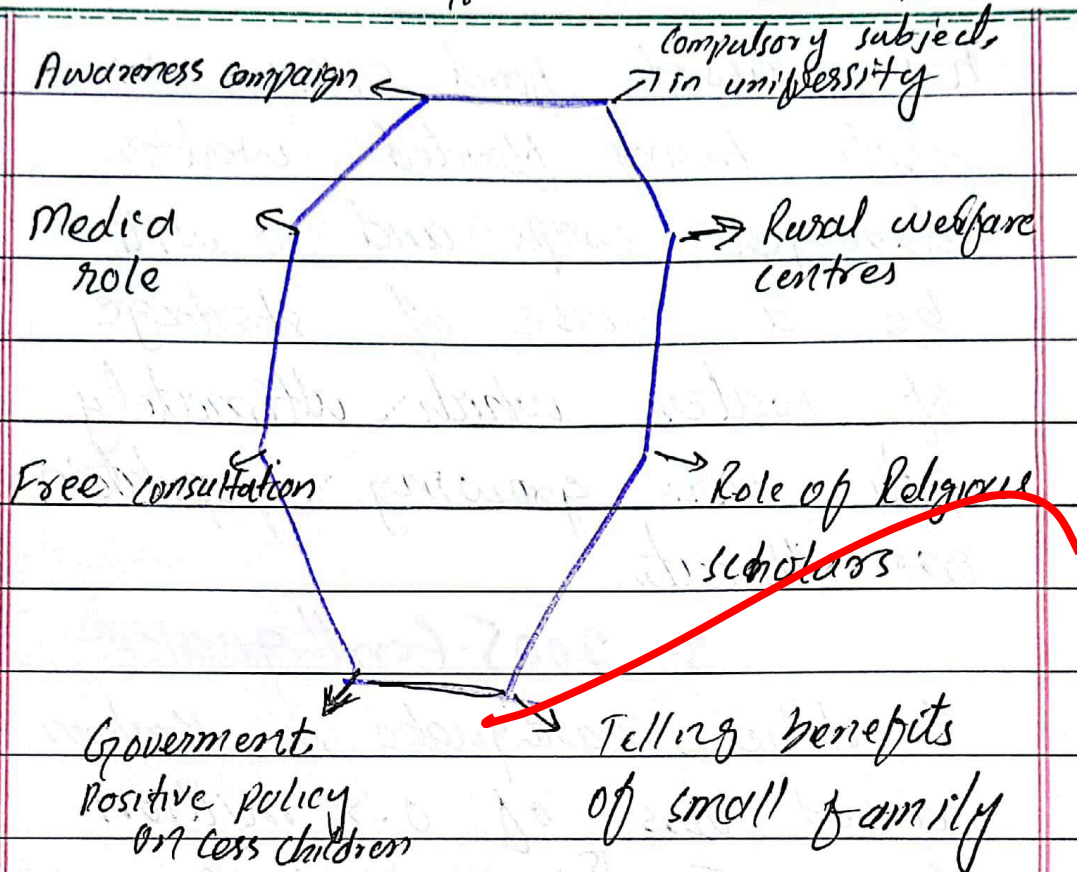 Awareness campaign
Compulsory subject,
in university
Media
role
Rural welfare
centres
Free consultation
Role of Religious
scholars
Goverment
Positive policy
on less children
Telling benefits
of small family